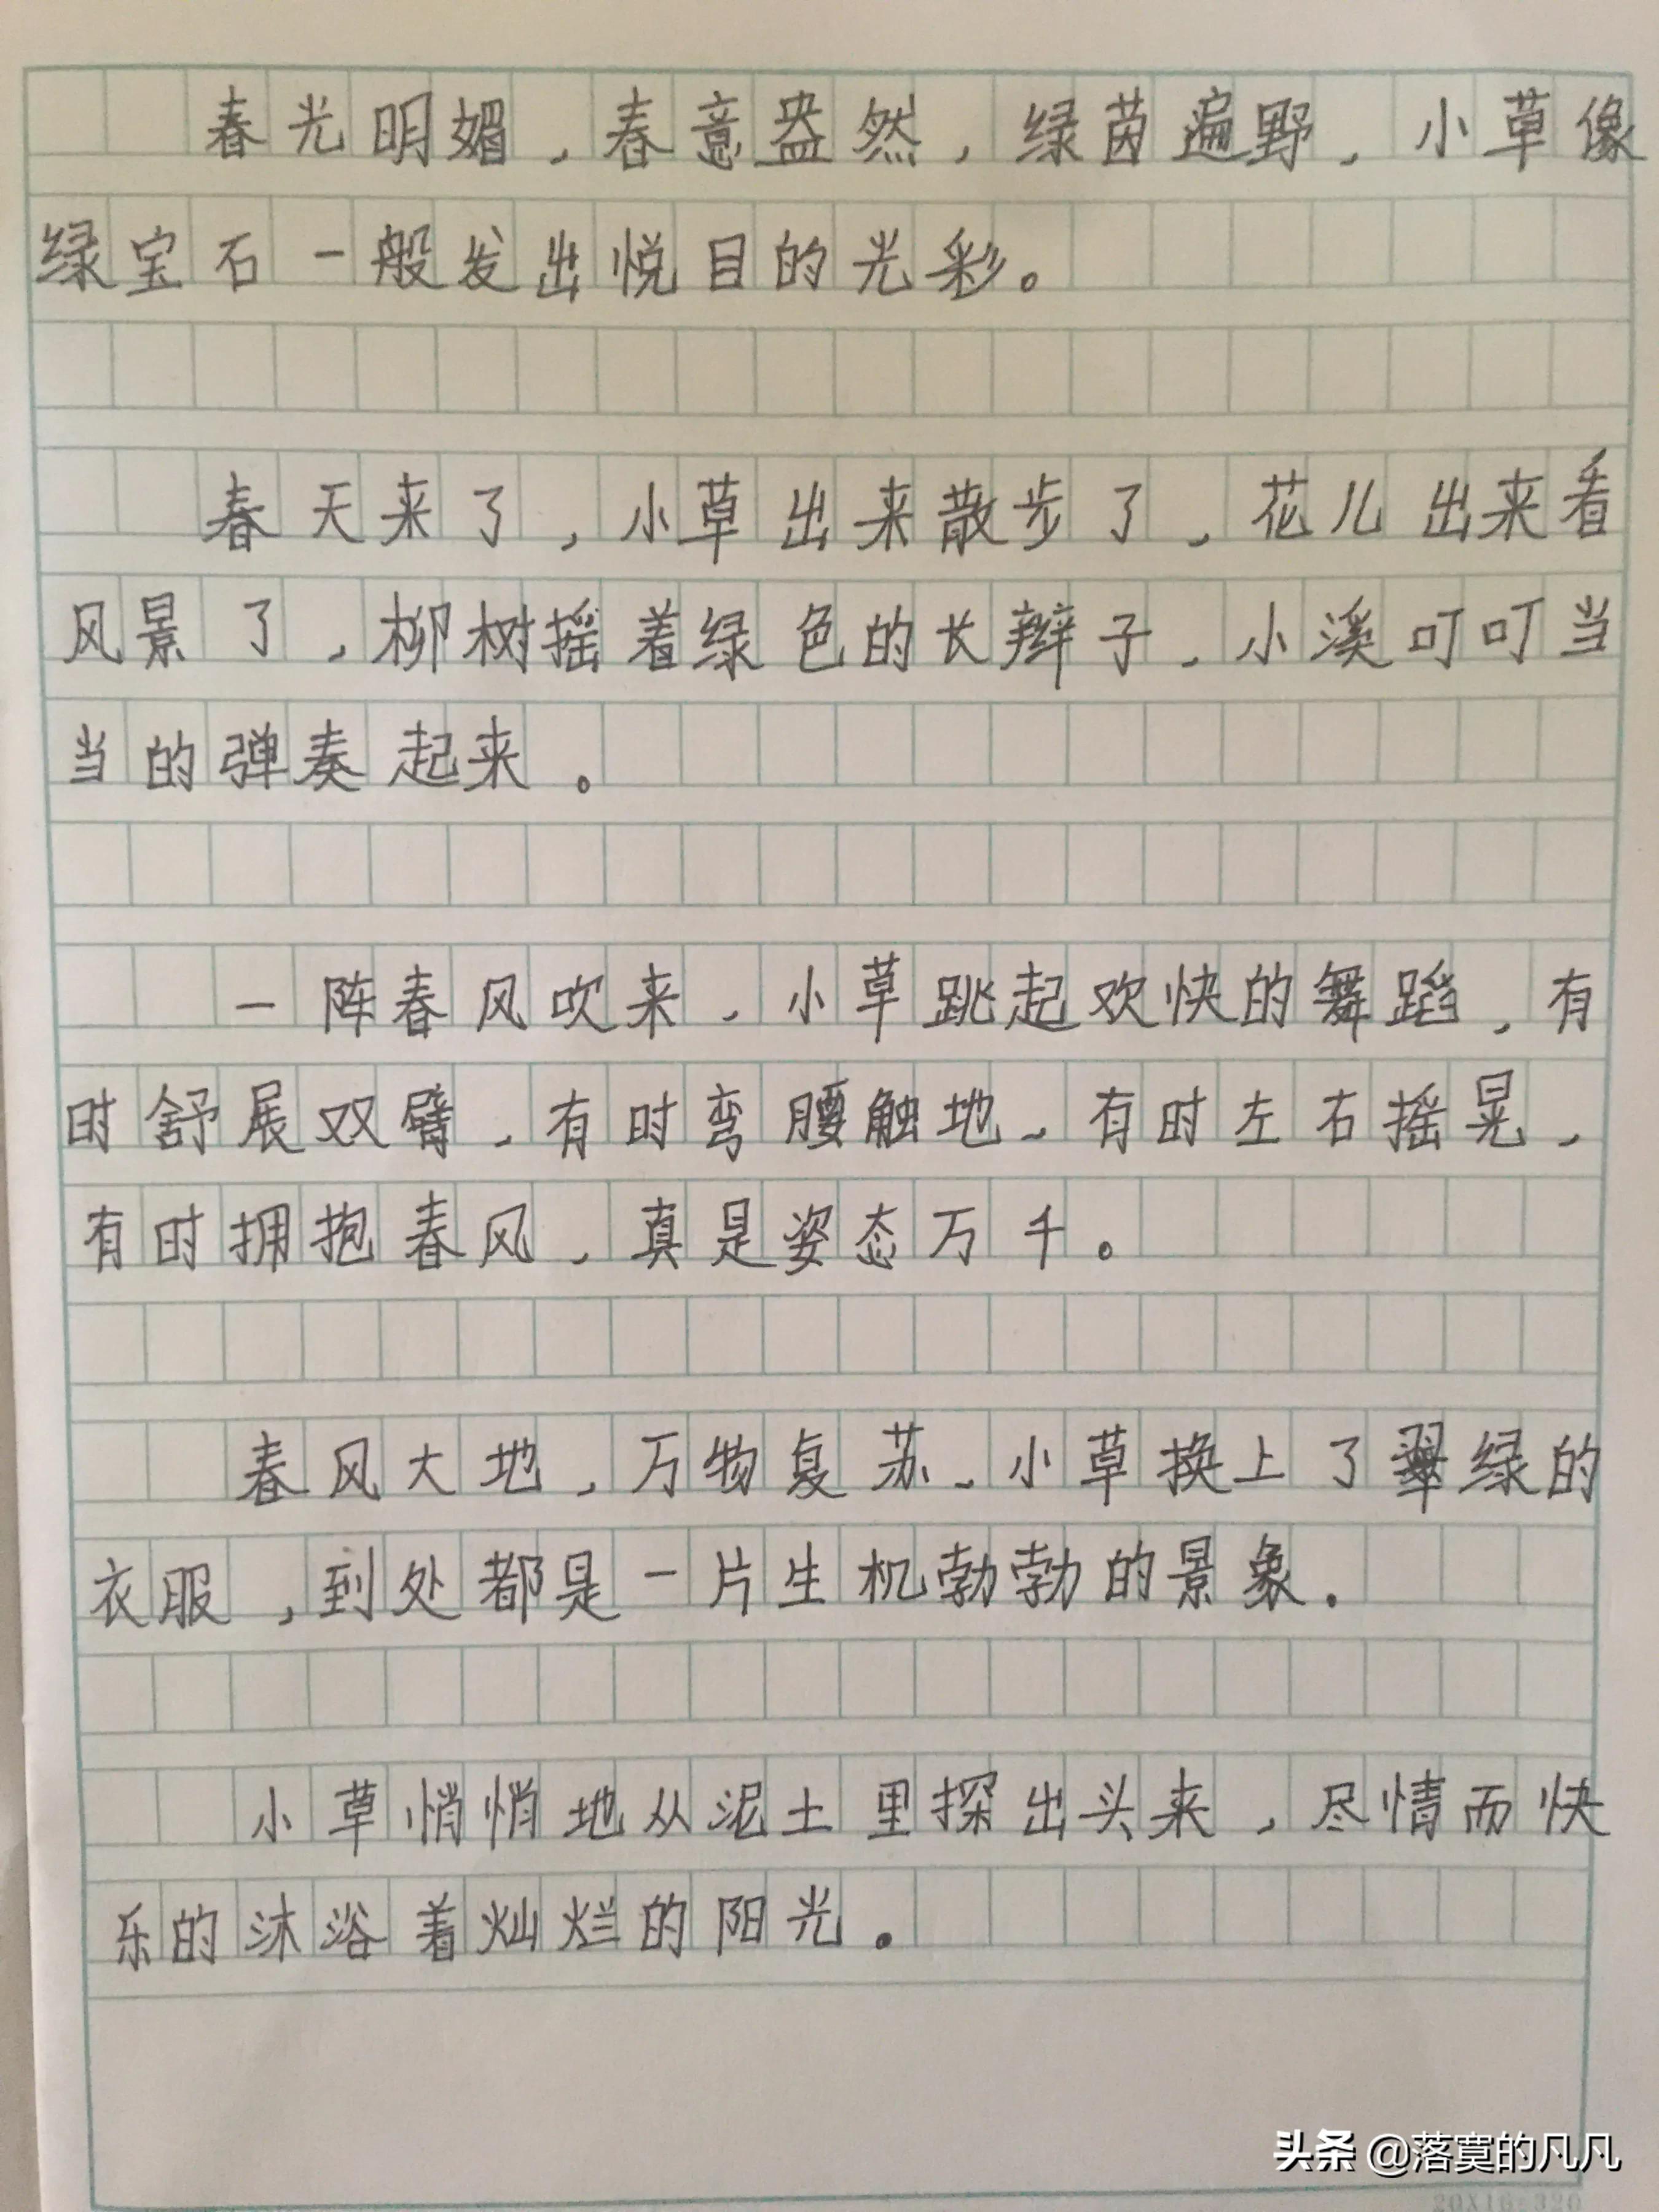 春光明媚,春意盎然,绿茵遍野,小草像
绿宝石一般发出悦目的光彩。
春天来了,小草出来散步了,花儿出来看
风景了,柳树摇着绿色的长辫子,小溪叮叮当
当的弹奏起来。
一阵春风吹来,小草跳起欢快的舞蹈,有
时舒展双臂,有时弯腰触地、有时左右摇晃,
有时拥抱春风,真是姿态万千。
春风大地,万物复苏、小草换上了翠绿的
衣服,到处都是一片生机勃勃的景象.
小草悄悄地从泥土里探出头来,尽情而快
乐的沐浴着灿烂的阳光.
头条 @落寞的凡凡
20X16=320